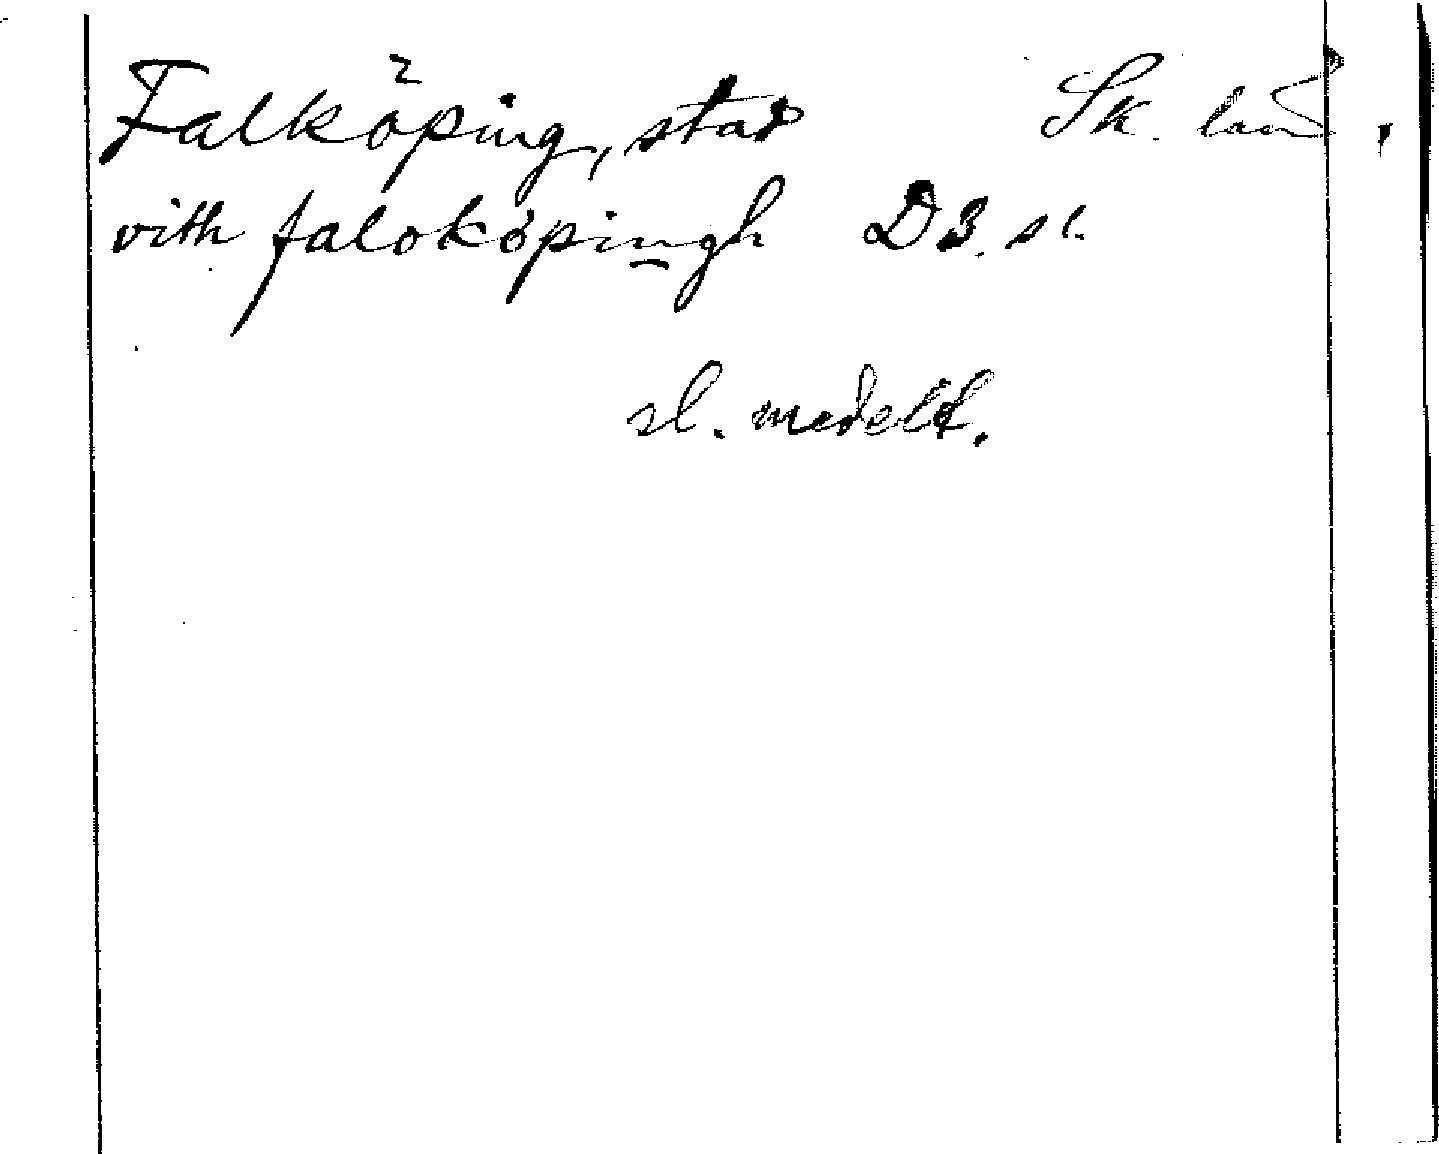 Falköping, stad Sk. land.
vith faloköpingh D3. sl.
sl. medelt.